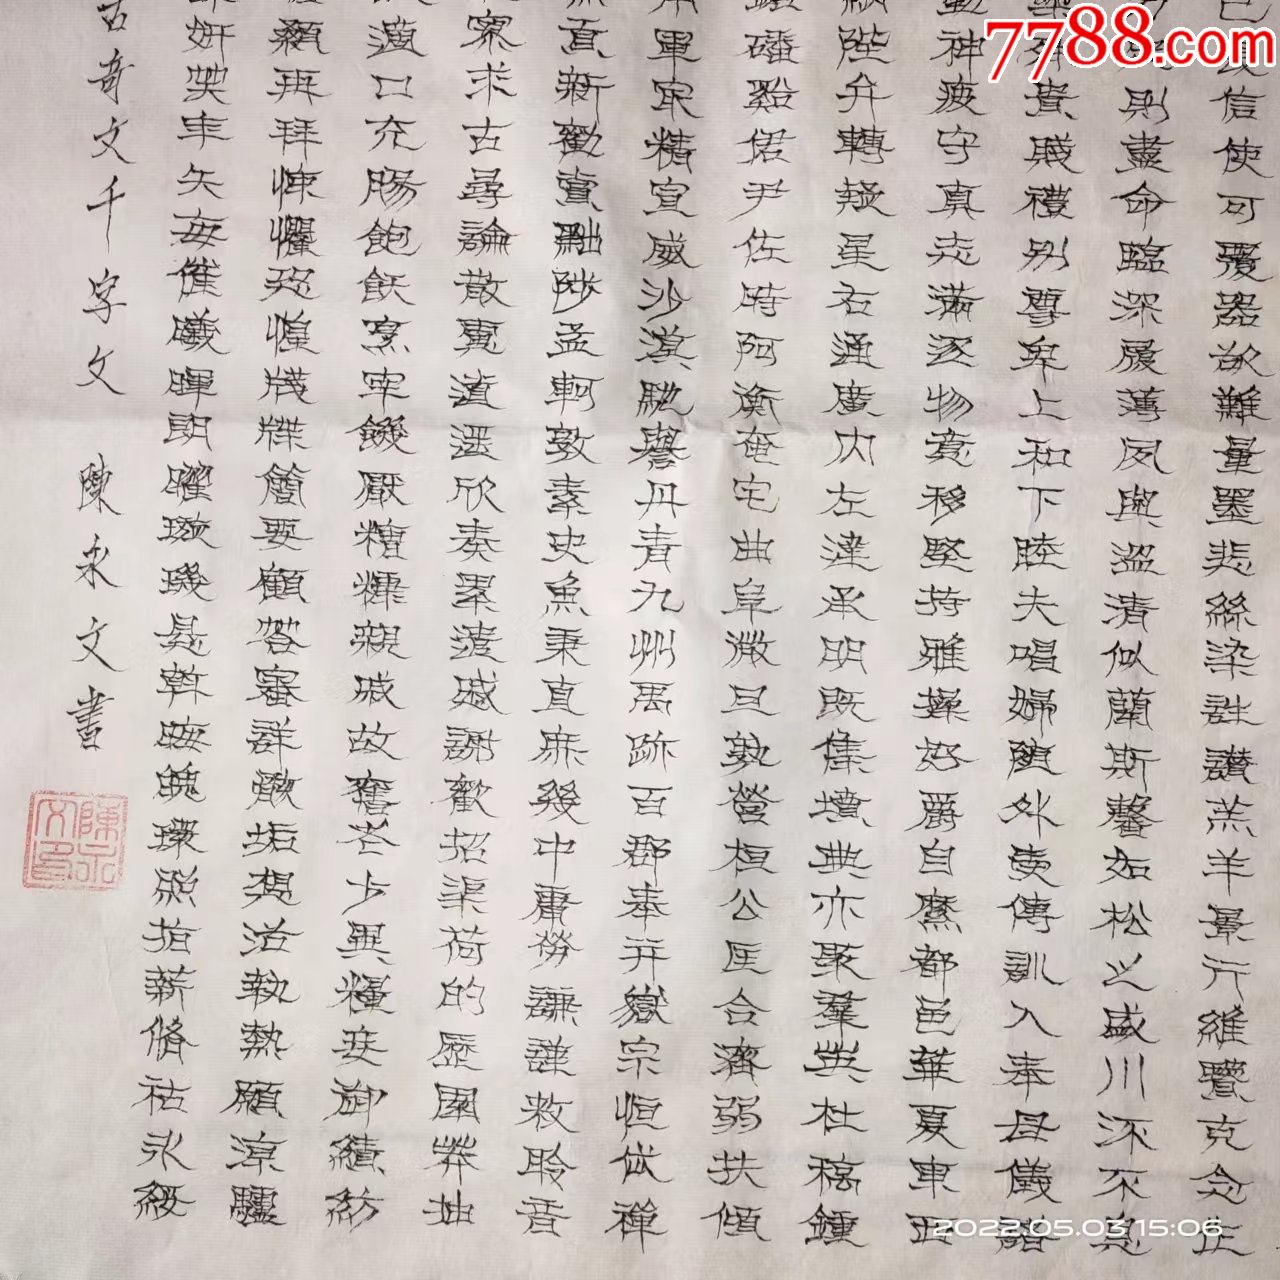 7788.com
長信使可覆器欲難量墨悲絲染詩讚羔羊景行維賢克念作
則盡命臨深履薄夙興溫清似蘭斯馨如松之盛川流不息
殊貴賤禮別尊卑上和下睦夫唱婦隨外受傅訓入奉母儀諸
動神疲守真志滿逐物意移堅持雅操好爵自縻都邑華夏東西
納陛弁轉疑星右通廣內左達承明既集墳典亦聚群英杜稿鍾
磻谿伊尹佐時阿衡奄宅曲阜微旦孰營桓公匡合濟弱扶傾
用軍最精宣威沙漠馳譽丹青九州禹跡百郡秦并嶽宗恒岱禪
貢新勸賞黜陟孟軻敦素史魚秉直庶幾中庸勞謙謹敕聆音
寥求古尋論散慮逍遙欣奏累遣慼謝歡招渠荷的歷園莽抽
適口充腸飽飫烹宰饑厭糟糠親戚故舊老少異糧妾御績紡
顙再拜悚懼恐惶牋牒簡要顧答審詳骸垢想浴執熱願涼驢
妍笑年矢每催曦暉朗曜璇璣懸斡晦魄環照指薪脩祜永綏
古奇文千字文 陳永文書
陳永文印
2022.05.03 15:06